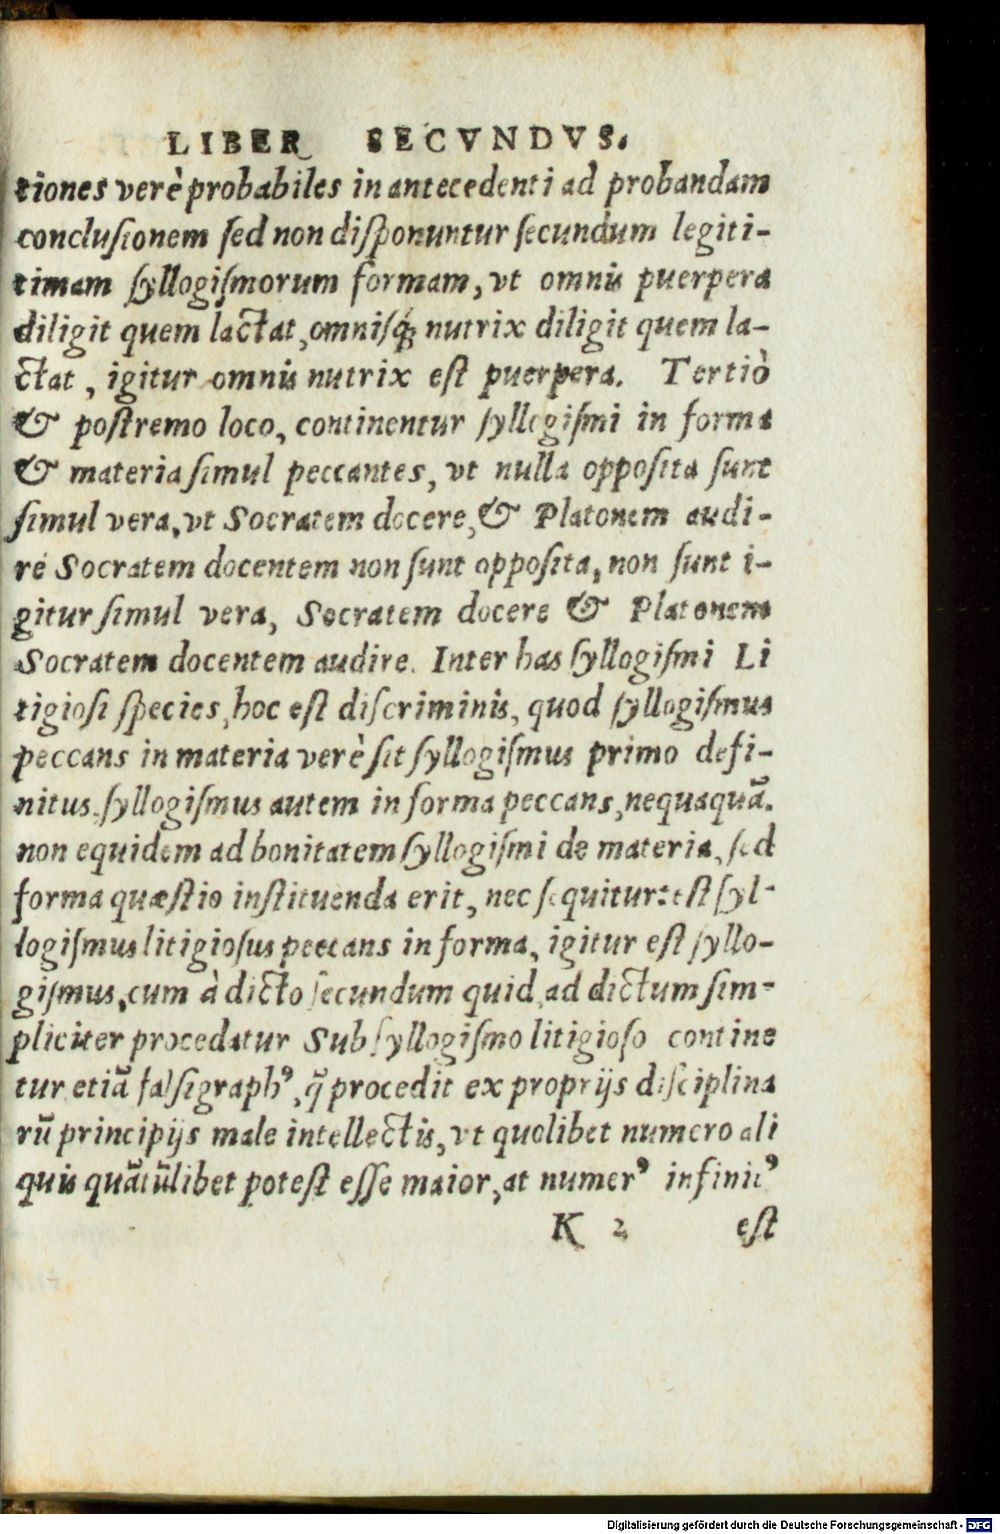 LIBER SECVNDVS.
tiones verè probabiles in antecedenti ad probandam
conclusionem sed non disponuntur secundum legiti-
timam syllogismorum formam, vt omnis puerpera
diligit quem lactat, omnisq́; nutrix diligit quem la-
ctat, igitur omnis nutrix est puerpera. Tertiò
& postremo loco, continentur syllogismi in forma
& materia simul peccantes, vt nulla opposita sunt
simul vera, vt Socratem docere, & Platonem audi-
re Socratem docentem non sunt opposita, non sunt i-
gitur simul vera, Socratem docere & Platonem
Socratem docentem audire. Inter has syllogismi Li
tigiosi species, hoc est discriminis, quod syllogismus
peccans in materia verè sit syllogismus primo defi-
nitus, syllogismus autem in forma peccans, nequaquā.
non equidem ad bonitatem syllogismi de materia, sed
forma quæstio instituenda erit, nec sequitur: est syl-
logismus litigiosus peccans in forma, igitur est syllo-
gismus, cum à dicto secundum quid ad dictum sim-
pliciter procedatur Sub syllogismo litigioso contine
tur etiā falsigraphꝰ, q̄ procedit ex proprijs disciplina
rū principijs male intellectis, vt quolibet numero ali
quis quātūlibet potest esse maior, at numerꝰ infinitꝰ
K 2 est
Digitalisierung gefördert durch die Deutsche Forschungsgemeinschaft - DFG